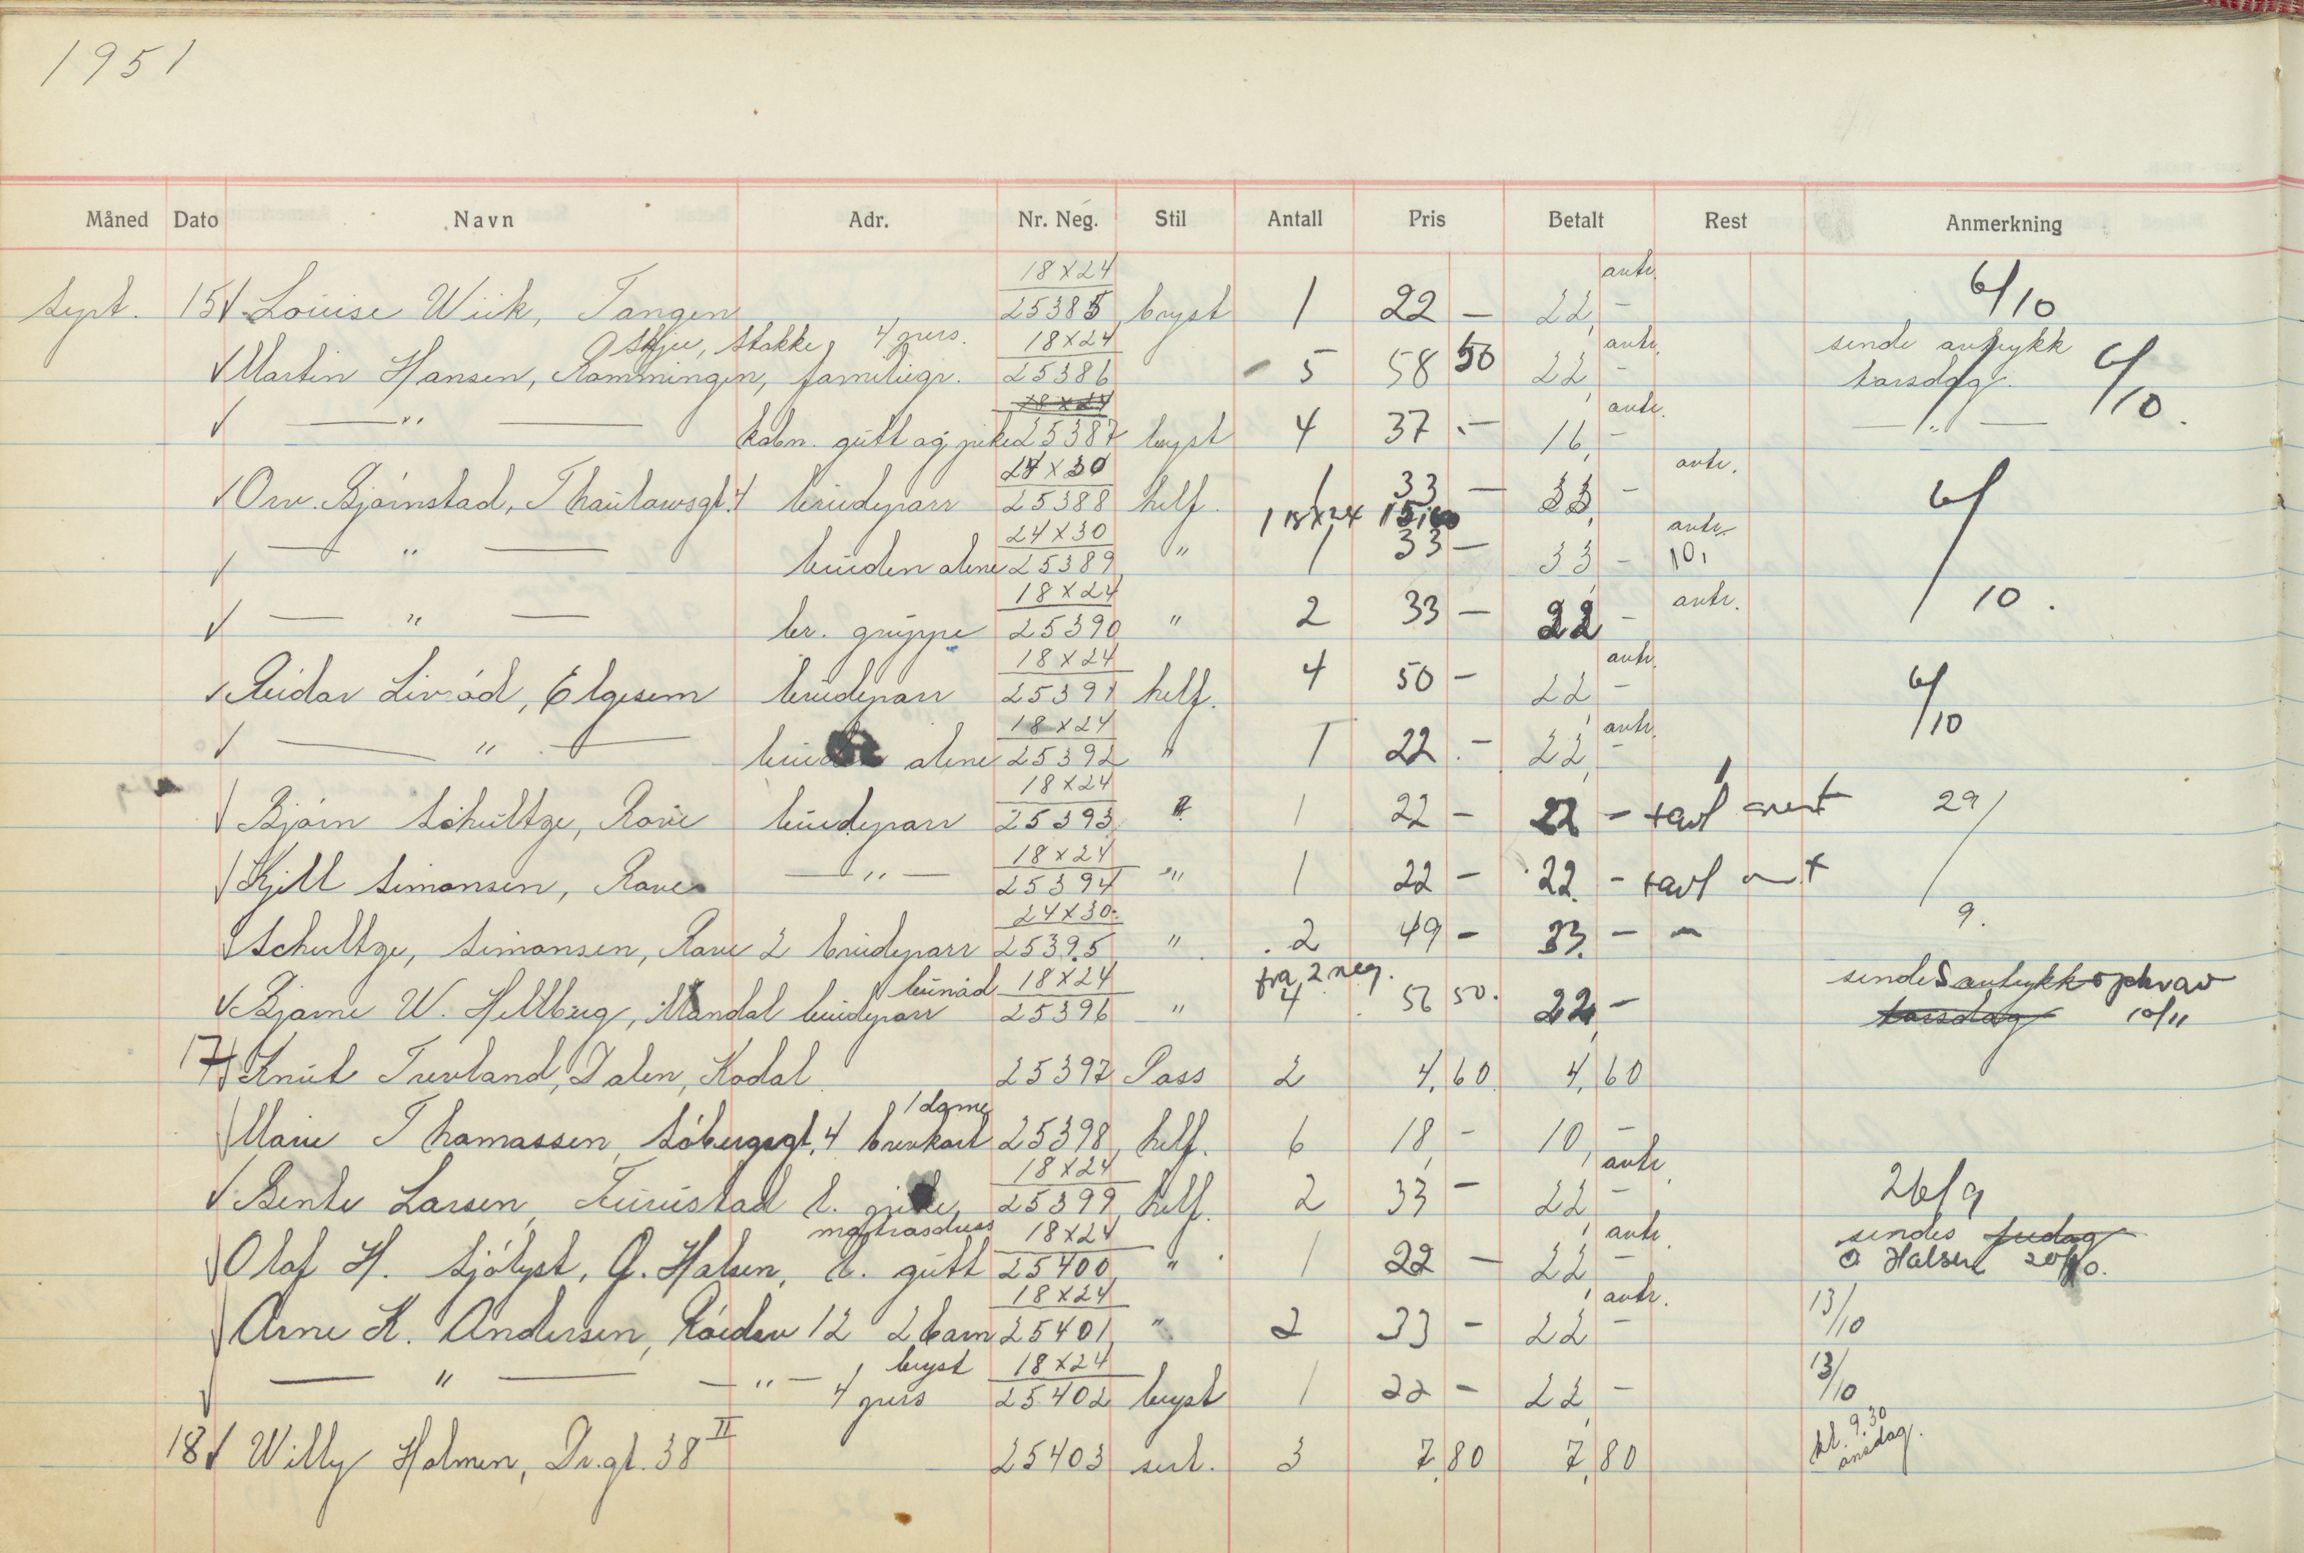 1951
Måned Dato Navn Adr. Nr. Neg. Stil Antall Pris Betalt Rest Anmerkning
18x24 antr.
Sept. 15 Louise Wiik, Tangen 25385 bryst 1 22 - 22,- 6/10
Skjee, Stokke 4 pers. 18x24 antr. sende avtrykk
Martin Hansen, Ramningen, familiegr. 25386 5 58 50 22,- torsdag. 6/10
18x24 antr.
— " — kabn. gutt og pike 25387 bryst 4 37.- 16,- — " —
24x30 antr.
Orv. Bjørnstad, Thaulowsgt. 4 brudeparr 25388 helf. 1 33 - 33,- 6/10.
1 18x24 15,60
24x30 antr.
— " — bruden alene 25389 " 1 33 - 33 - 10,
18x24 antr.
— " — br. gruppe 25390 " 2 33 - 22 -
18x24 antr.
Reidar Livród, Elgesem brudeparr 25391 helf. 4 50 - 22,- 6/10
18x24 antr.
— " — alene 25392 " 1 22.- 22,-
18x24
Bjørn Schultze, Rove brudeparr 25393 " 1 22 - 22 - 29/9.
18x24
Kjell Simonsen, Rove — " — 25394 " 1 22 - 22. -
24x30
Schultze, Simonsen, Rove 2 brudeparr 25395 " 2 49 - 33. - -
bunad 18x24 fra 2 neg. sendes avtrykk opkrav
Bjarne W. Hellberg, Mandal brudeparr 25396 " 4 56 50. 22,- torsdag 10/11
17 Knut Trevland, Dalen, Kodal 25397 Pass 2 4,60 4,60
1 dame
Marie Thomassen, Söbergsgt. 4 brevkort 25398 helf. 6 18,- 10,-
18x24 antr.
Bente Larsen, Furustad l. pike 25399 helf. 2 33 - 22,- 26/9
matrosdress 18x24 antr. sendes fredag
Olaf H. Sjölyst, Ø. Halsen, l. gutt 25400 " 1 22 - 22,- Ø Halsen 20/10.
18x24 antr.
Arne K. Andersen, 12 2 barn 25401 " 2 33 - 22 - 13/10
bryst 18x24
— " — — " — 4 pers 25402 bryst 1 22 - 22,- 13/10
18 Willy Holmen, Dr.gt. 38 II 25403 sert. 3 7,80 7,80 kl. 9.30
onsdag.